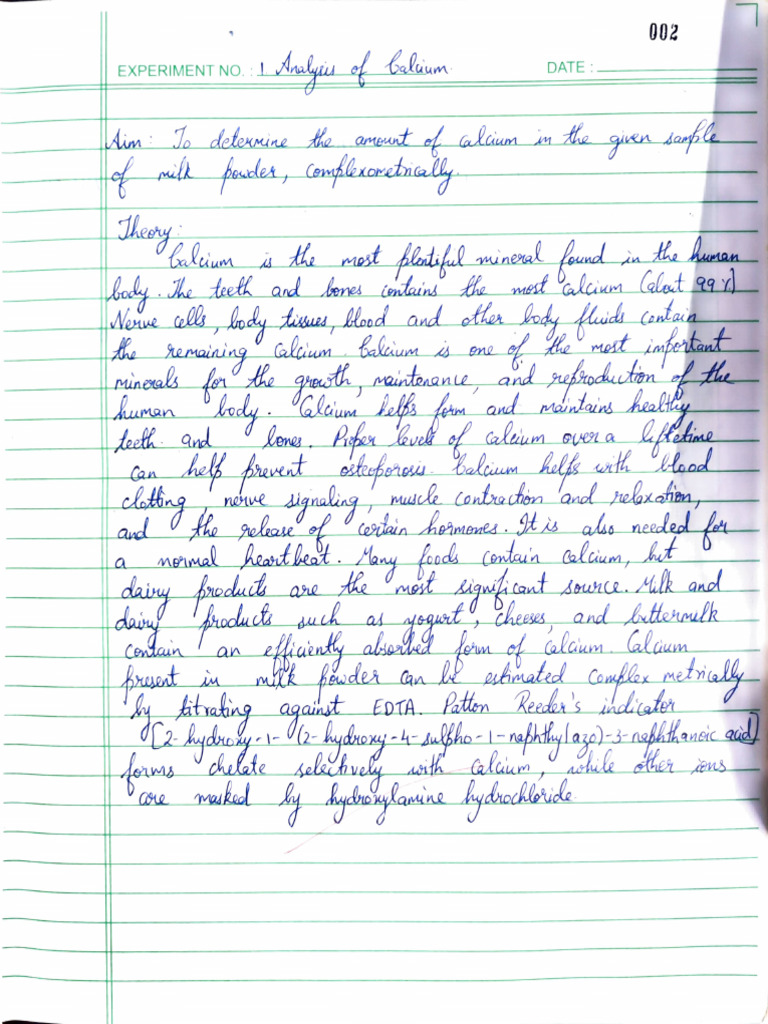 002
EXPERIMENT NO. : 1 Analysis of Calcium. DATE :
Aim: To determine the amount of calcium in the given sample
of milk powder, complexometrically.
Theory:
Calcium is the most plentiful mineral found in the human
body. The teeth and bones contains the most calcium (about 99%)
Nerve cells, body tissues, blood and other body fluids contain
the remaining calcium. Calcium is one of the most important
minerals for the growth, maintenance, and reproduction of the
human body. Calcium helps form and maintains healthy
teeth and bones. Proper levels of calcium over a lifetime
can help prevent osteoporosis. Calcium helps with blood
clotting, nerve signaling, muscle contraction and relaxation,
and the release of certain hormones. It is also needed for
a normal heartbeat. Many foods contain calcium, but
dairy products are the most significant source. Milk and
dairy products such as yogurt, cheeses, and buttermilk
contain an efficiently absorbed form of calcium. Calcium
present in milk powder can be estimated complex metrically
by titrating against EDTA. Patton Reeder's indicator
[2-hydroxy-1-(2-hydroxy-4-sulpho-1-naphthylazo)-3-naphthanoic acid]
forms chelate selectively with calcium, while other ions
are masked by hydroxylamine hydrochloride.